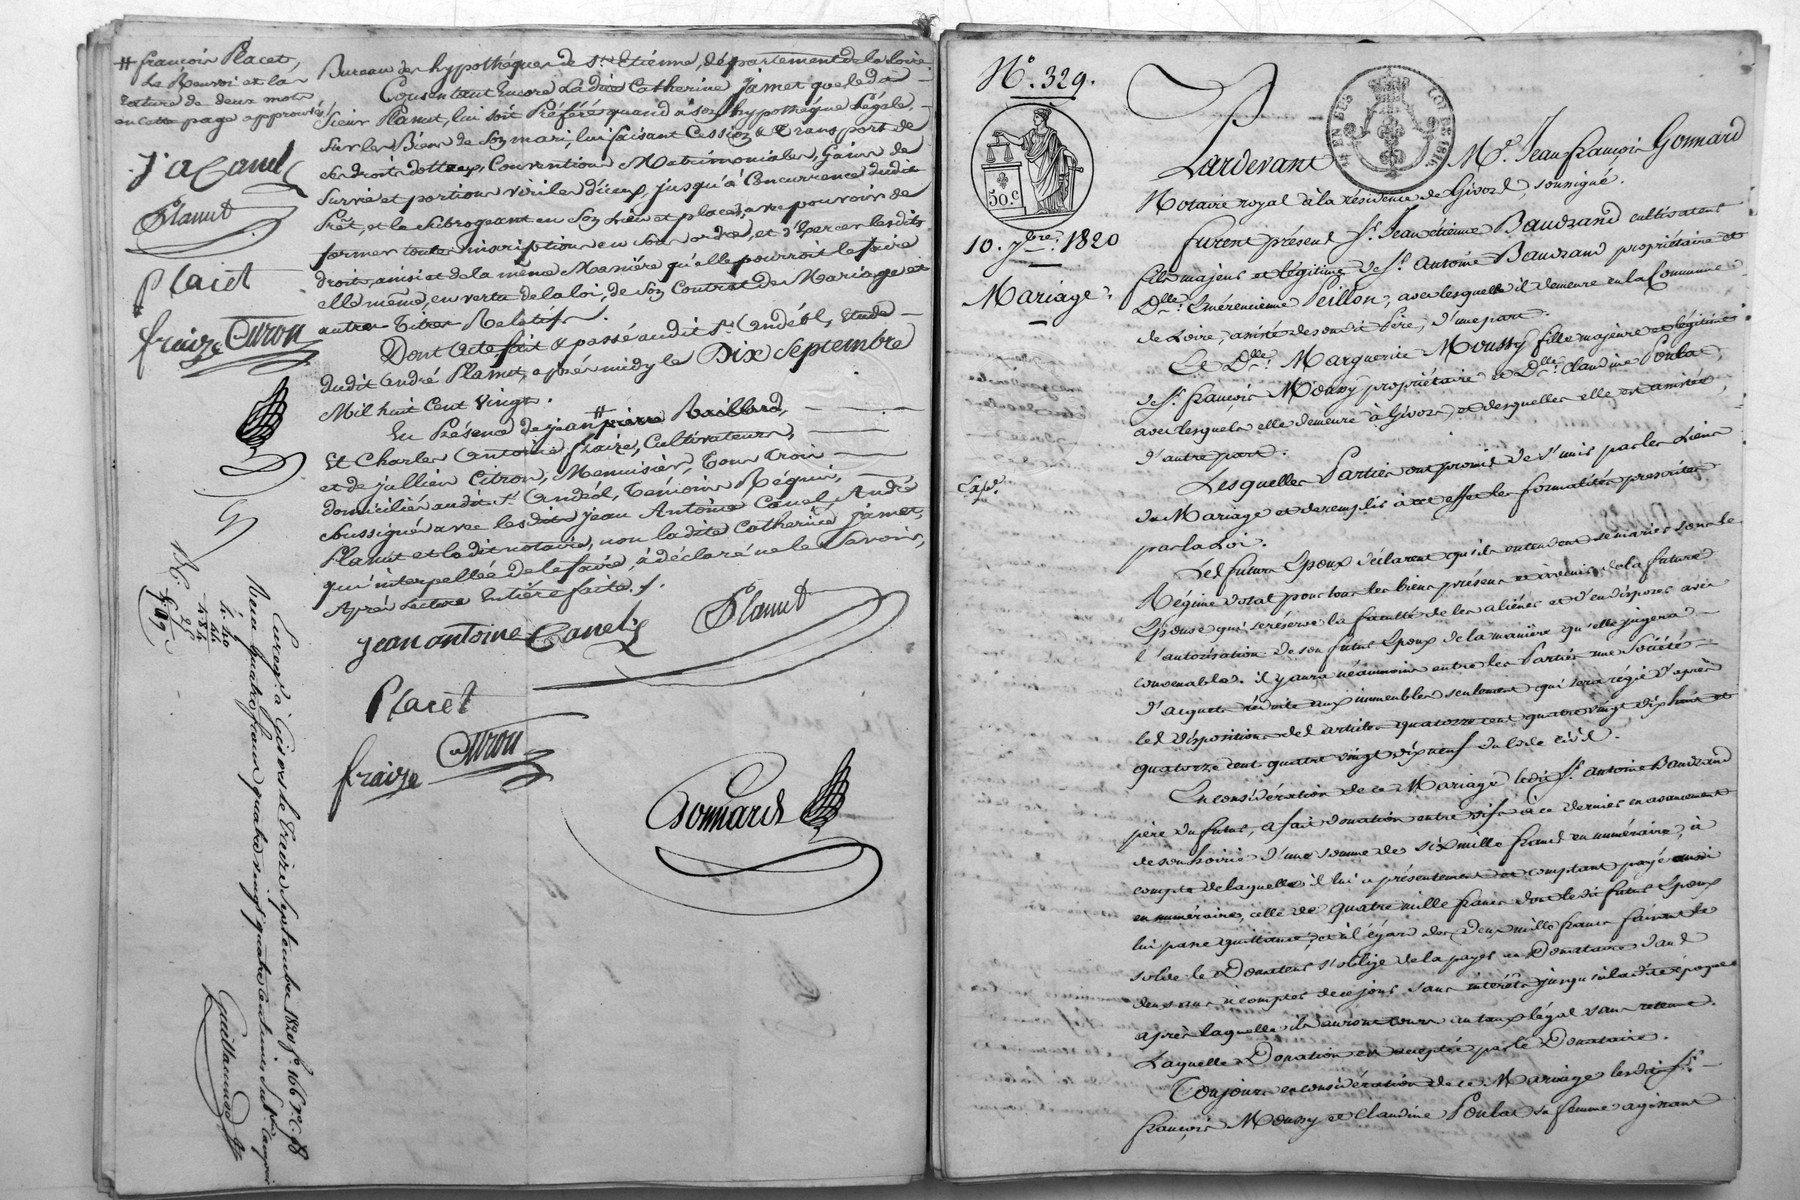 # françois Placet,
Le Renvoi et la
rature de deux mots
en cette page approuvés
J a Canel
Planut
Placet
fraize Citron
Bureau des hypothéques de St. Etienne, département de la Loire
Consentant Encore Ladite Catherine Jamet que le da
Sieur Planut, lui soit Préféré quand à son hypothéque Légale,
Sur les Biens de Son mari, lui faisant Cession & Transport de
Ses droits dottaux, Conventions Matrimoniales, Gains de
Survie et portions viriles d'iceux, jusqu'à Concurrence dudit
Prêt, et le Subrogeant en Son Lieu et place, avec pouvoir de
former toute inscription en Son ordre, et d'Exercer lesdits
droits, ainsi et de la même Manière qu'elle pourroit le faire
elle même, en vertu de la loi, de Son Contrat de Mariage et
autres Titres Relatifs.
Dont Acte fait & passé audit St. Andéol, Etude
dudit André Planut, après midy le Dix Septembre
Mil huit Cent Vingt.
En Présence de jean pierre Raillard,
Et Charles Antoine fraize, Cultivateurs,
et de jullien Citron, Menuisier, Tous Trois
domiciliés audit St. Andéol, Témoins Réquis,
Soussignés avec lesdits Jean Antoine Canel, André
Planut et ledit notaire, non ladite Catherine Jamet,
qui interpellée de le faire, à déclaré ne le Savoir,
Après Lecture Entière faite.
jean antoine Canel
Planut
Placet
Citron
fraize
Gonnard
Enreg.é à Givors le Treize Septembre 1820 fo. 166 ro. c. 98
Reçu quatre francs quatre vingt quatre centimes
Guillaumot
4.40
44
4.84
No. 329.
50 c
10. 7bre. 1820
Mariage
Exp.é
Pardevant Me. Jean françois Gonnard
Notaire royal à la résidence de Givors, soussigné.
furent présens Sr. Jean étienne Baudrand cultivateur
fils majeur et légitime de Sr. Antoine Baudrand propriétaire et
Dlle. Emérencienne Peillon, avec lesquels il demeure en la Commune
de Loire, assisté de son dit Père, d'une part.
Et Dlle. Marguerite Moussy fille majeure et légitime
de Sr. françois Moussy propriétaire et Dlle. Claudine Poulat,
avec lesquels elle demeure à Givors, et desquelles elle est assistée,
d'autre part.
Lesquelles Parties ont promis de s'unir par les Liens
du Mariage et de remplir à cet effet les formalités prescrites
par la Loi.
Les futurs Epoux déclarent qu'ils entendent se marier sous le
Régime dotal pour tous les biens présens et à venir de la future
Epouse qui se réserve la faculté de les aliéner et d'en disposer avec
l'autorisation de son futur Epoux de la manière qu'elle jugera
convenable. il y aura néanmoins entre les Parties une Société
d'acquets réduite aux immeubles seulement qui sera régie d'après
les dispositions des articles quatorze cent quatre vingt dix huit et
quatorze cent quatre vingt dix neuf du Code civil.
En considération de ce Mariage ledit Sr. Antoine Baudrand
père du futur, a fait donation entre vifs à ce dernier en avancement
de son hoirie d'une somme de six mille francs en numéraire, à
compte de laquelle il lui a présentement et comptant payé aussi
en numéraire, celle de quatre mille francs dont ledit futur Epoux
lui passe quittance; et à l'égard des deux mille francs faisant le
solde le Donateur s'oblige de la payer au Donataire dans
deux ans à compter de ce jour, sans intérêts jusqu'à ladite époque
après laquelle ils auront cours au taux légal sans retenue.
Laquelle Donation est acceptée par le Donataire.
Toujours en considération de ce Mariage lesdits Sr.
françois Moussy et Claudine Poulat sa femme agissant